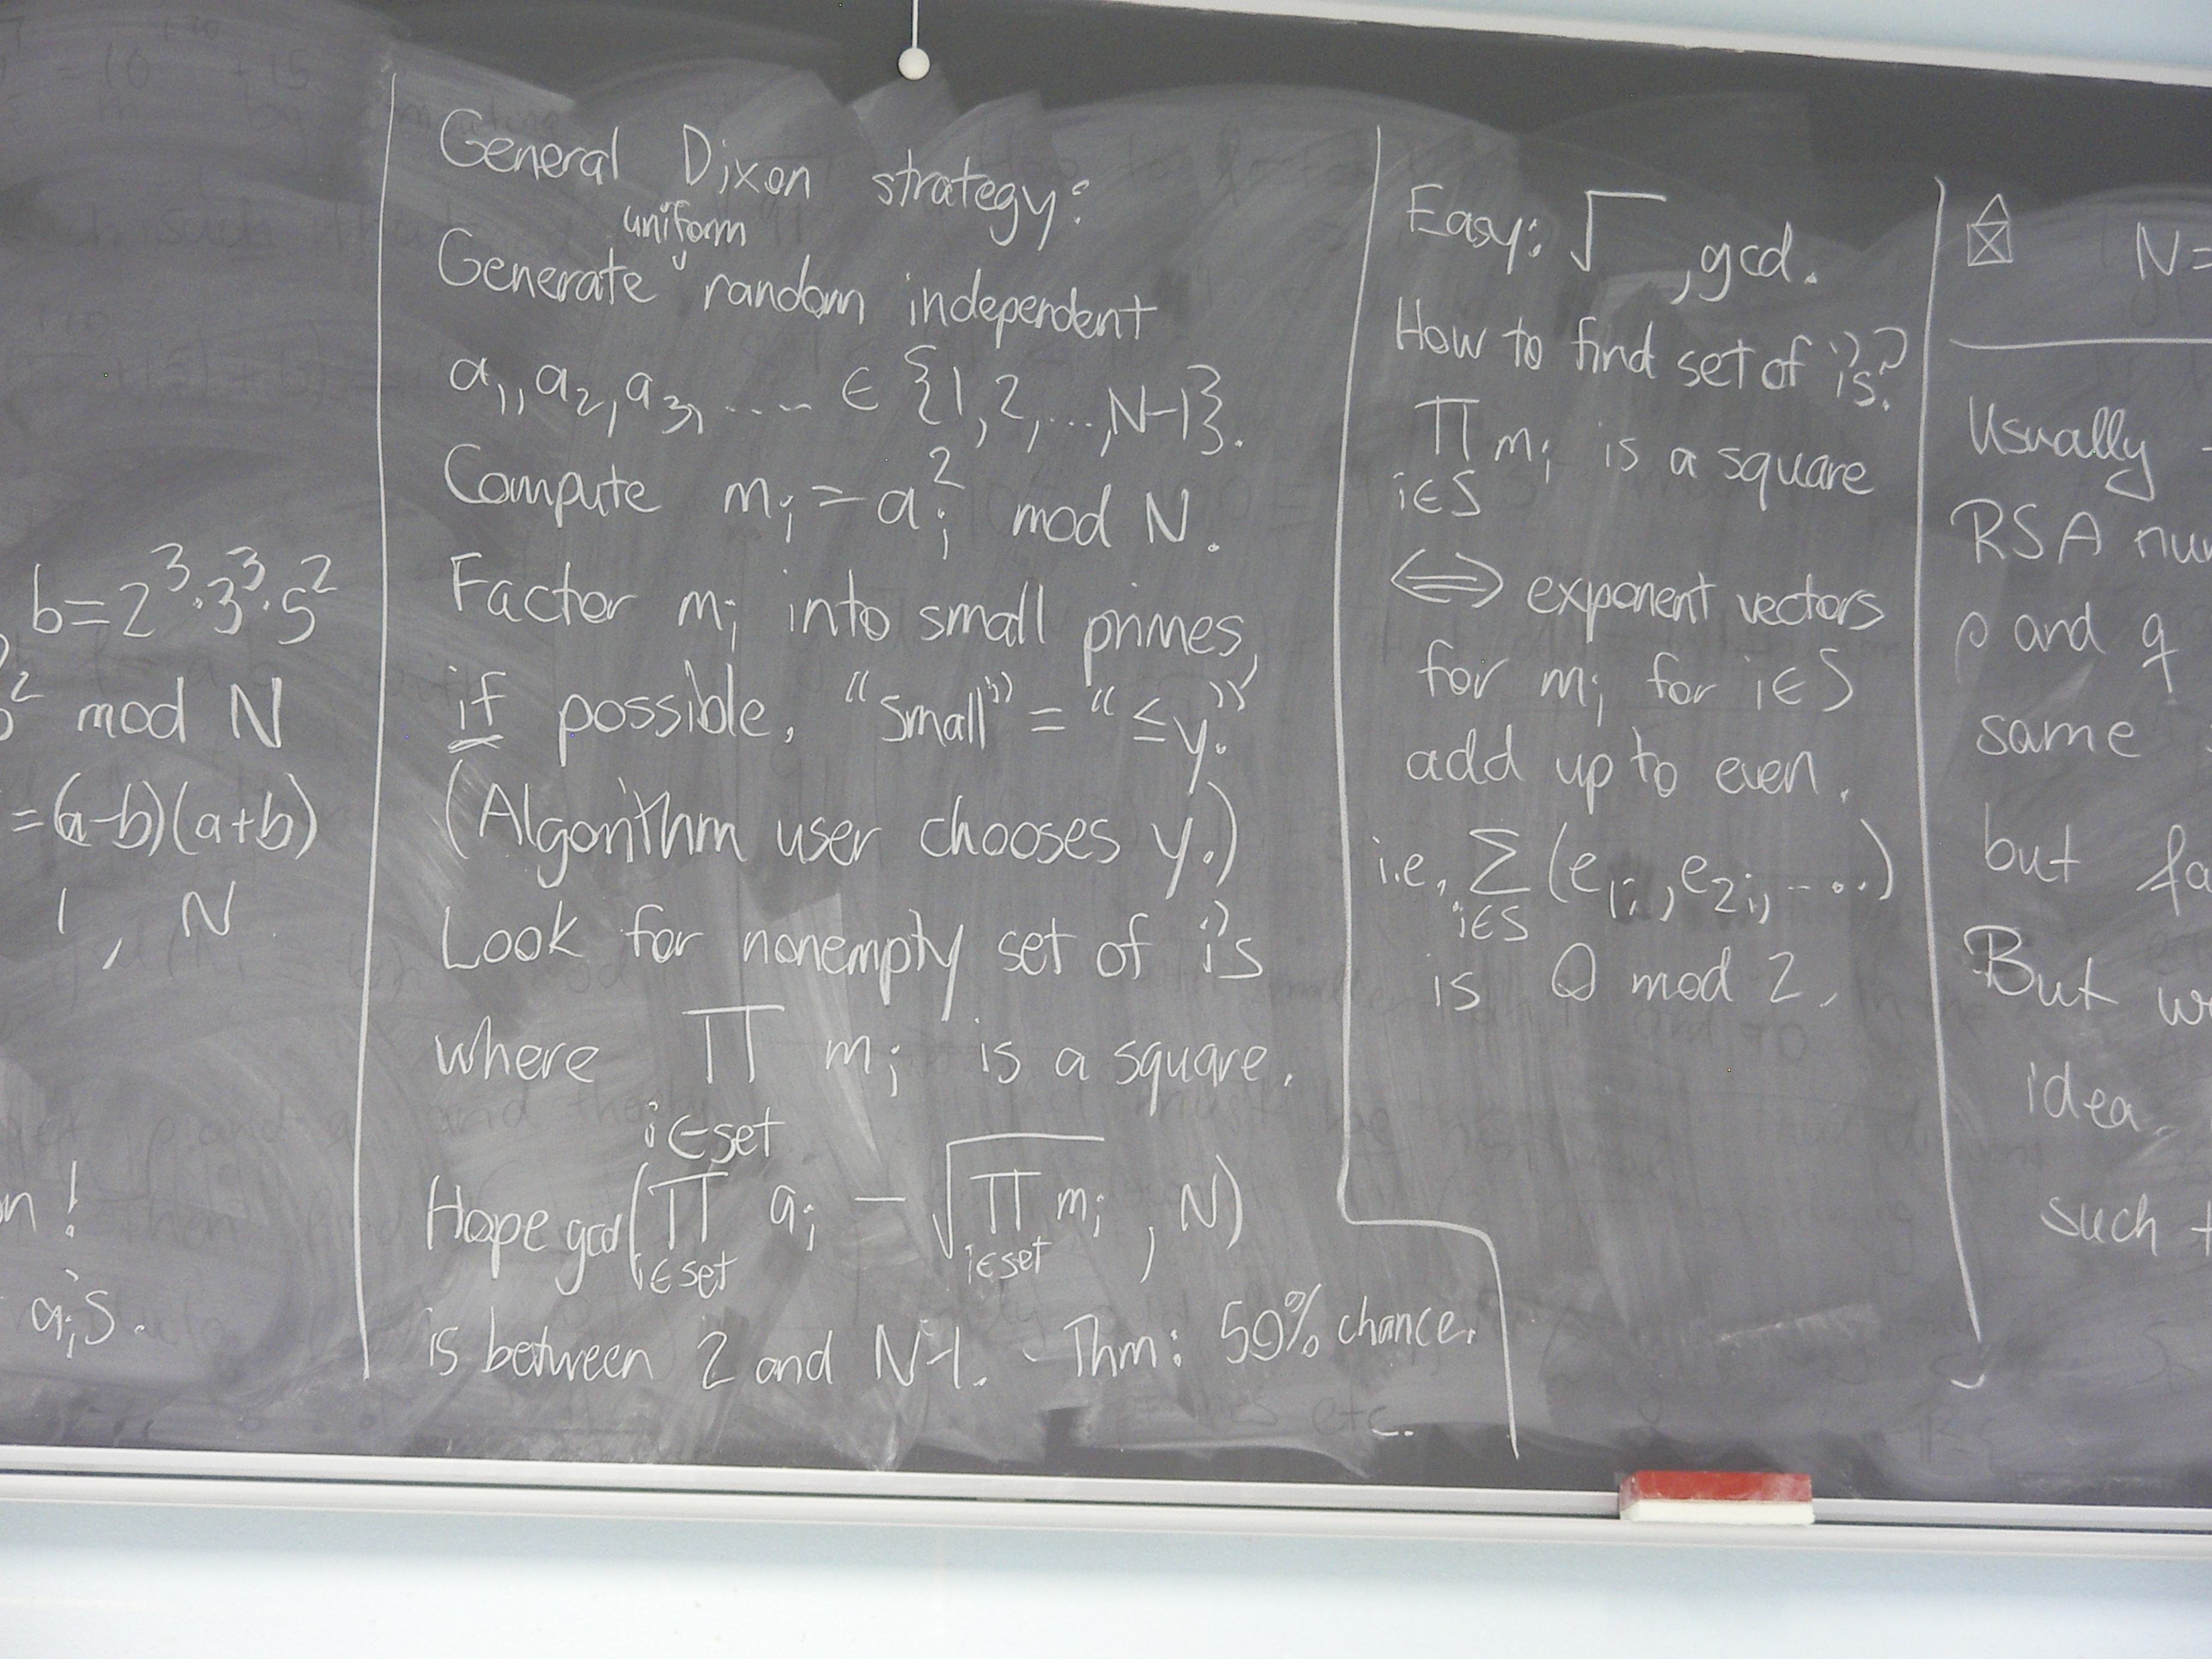 b=2³·3³·5²
² mod N
=(a-b)(a+b)
1, N
n!
a_i's.
General Dixon strategy:
uniform
Generate random independent
a₁, a₂, a₃, .... ∈ {1, 2, ..., N-1}.
Compute m_i = a_i² mod N.
Factor m_i into small primes,
if possible. "Small" = "≤y."
(Algorithm user chooses y.)
Look for nonempty set of i's
where ∏ m_i is a square.
i∈set
Hope gcd(∏ a_i - √∏ m_i, N)
i∈set i∈set
is between 2 and N-1. Thm: 50% chance.
etc.
Easy: √, gcd.
How to find set of i's?
∏ m_i is a square
i∈S
⟺ exponent vectors
for m_i for i∈S
add up to even.
i.e. ∑ (e₁ᵢ, e₂ᵢ, ....)
i∈S
is 0 mod 2.
N=
Usually
RSA nu
p and q
same
but fa
But w
idea.
such t